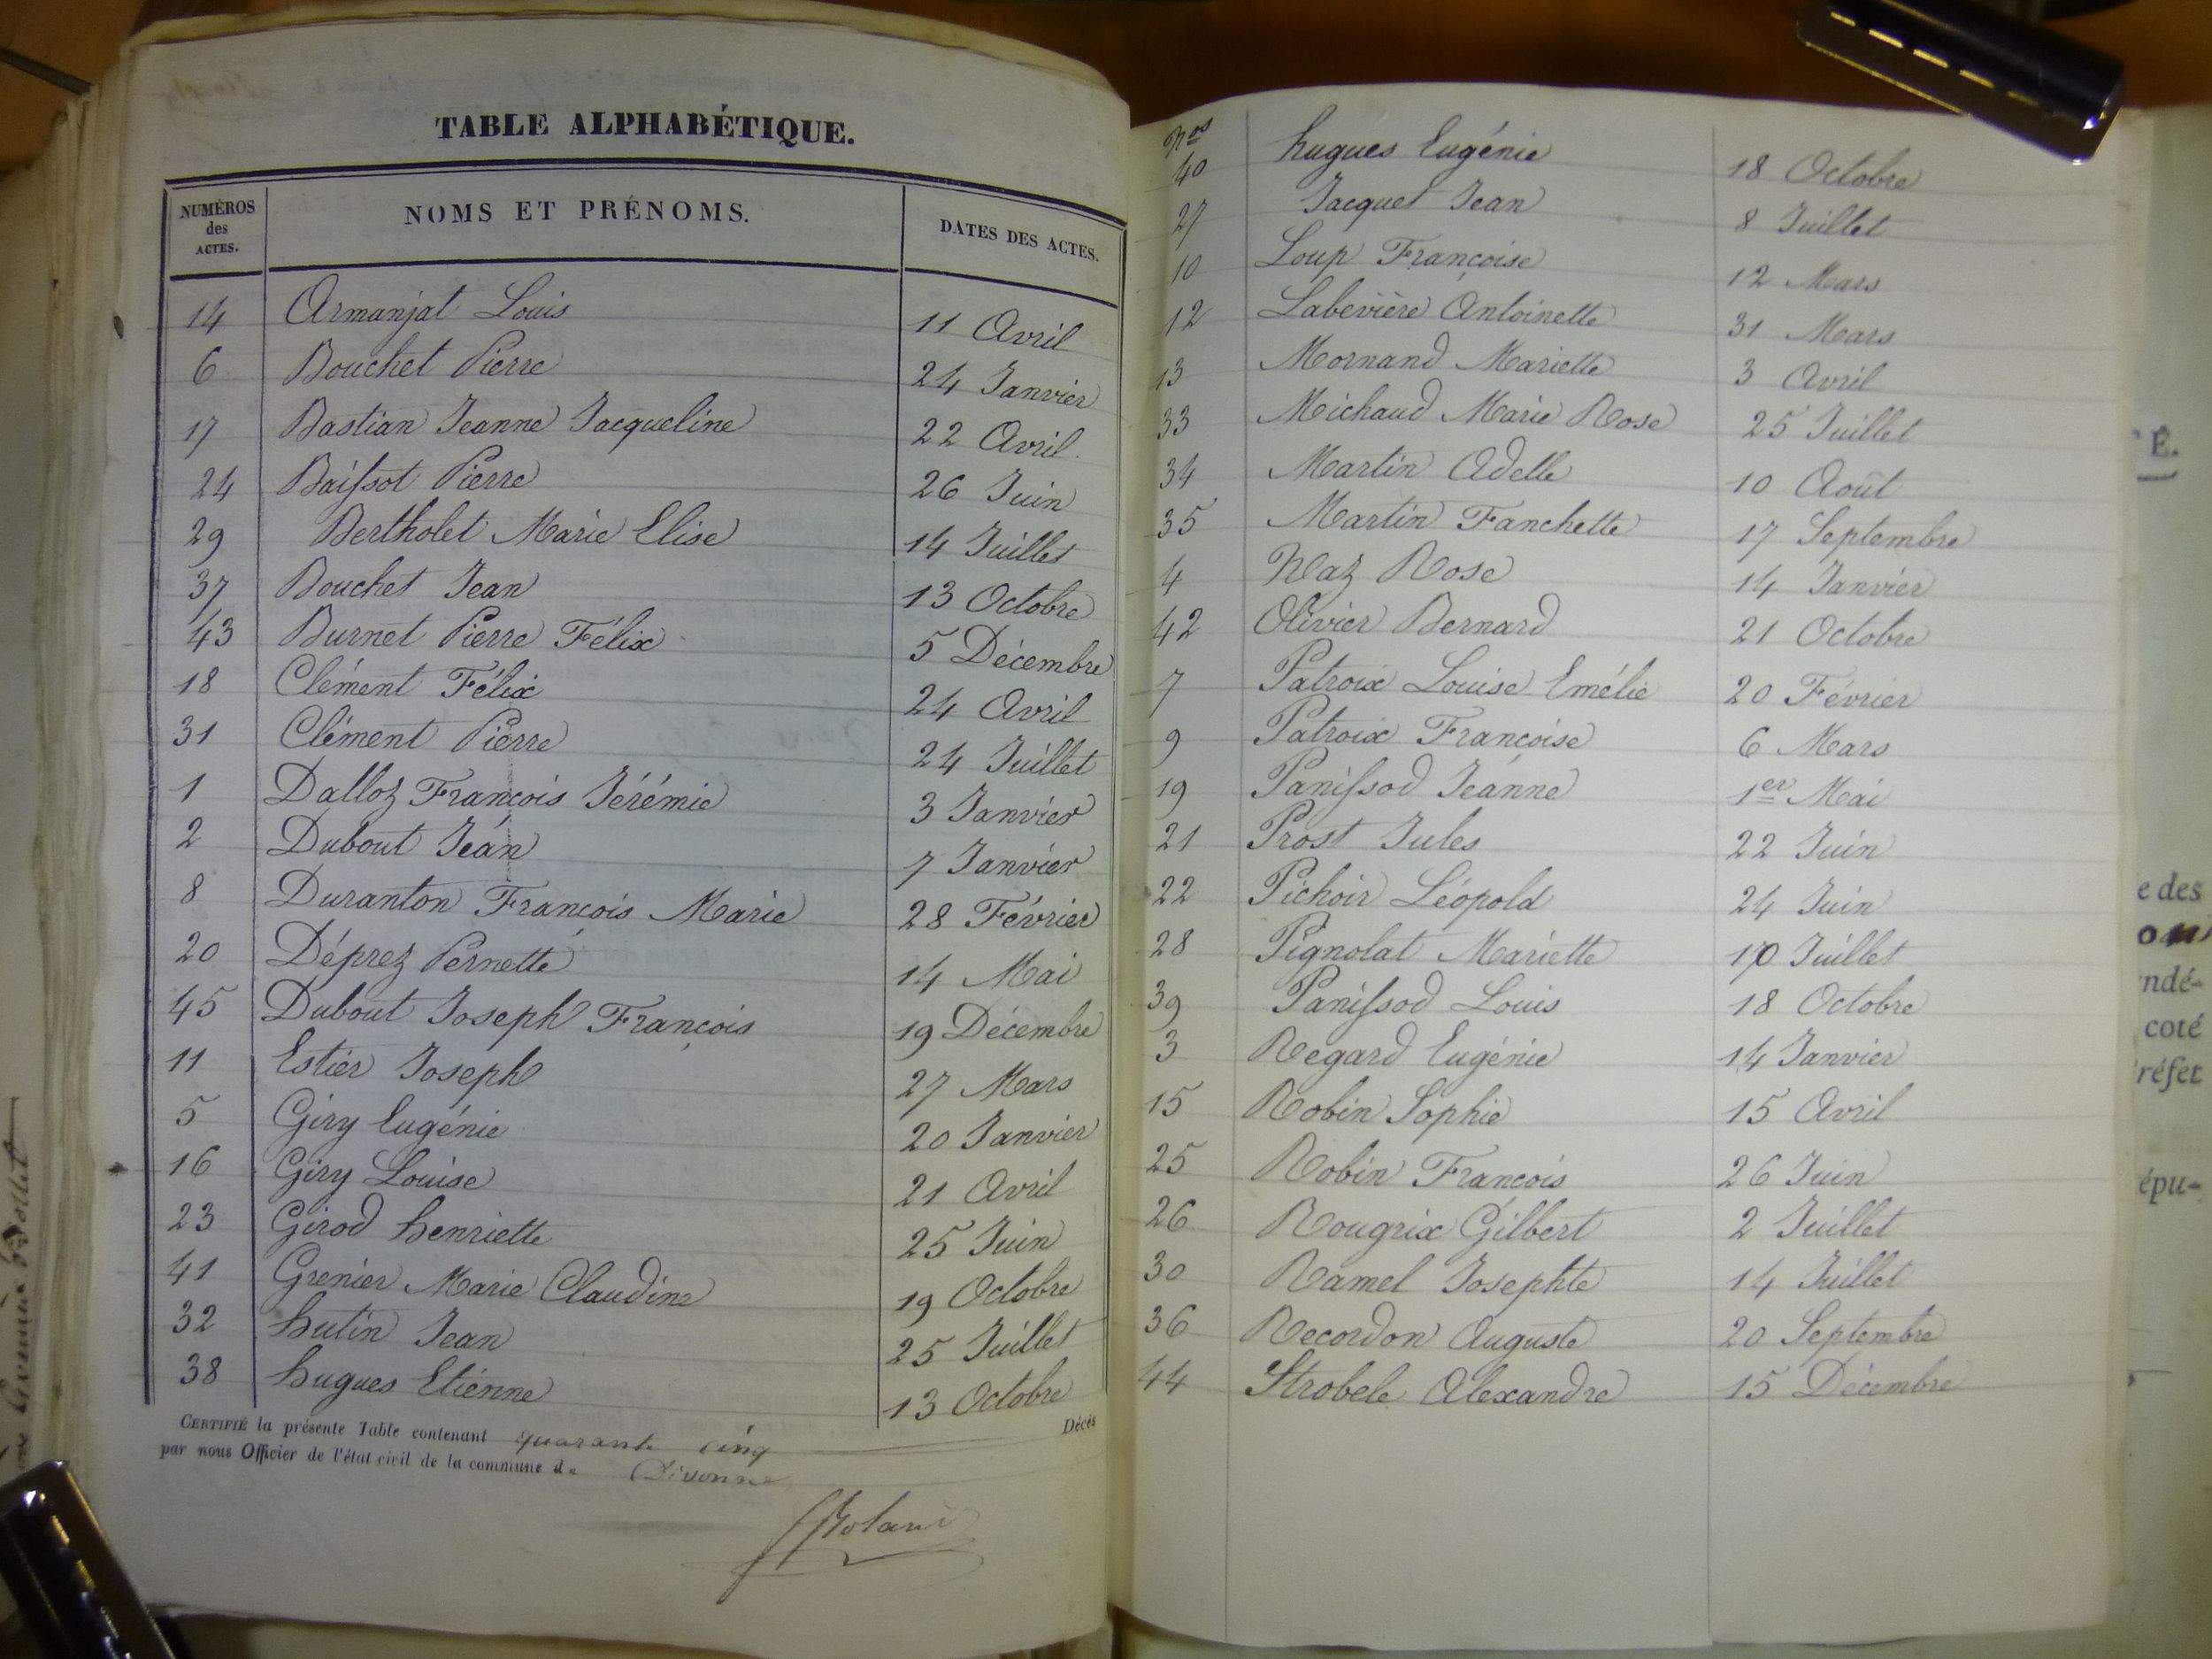 TABLE ALPHABÉTIQUE.
NUMÉROS des ACTES. NOMS ET PRÉNOMS. DATES DES ACTES.
14 Armanjat Louis 11 Avril
6 Bouchet Pierre 24 Janvier
17 Bastian Jeanne Jacqueline 22 Avril
24 Baissot Pierre 26 Juin
29 Bertholet Marie Elise 14 Juillet
37 Bouchet Jean 13 Octobre
43 Burnet Pierre Félix 5 Décembre
18 Clément Félix 24 Avril
31 Clément Pierre 24 Juillet
1 Dalloz François Jérémie 3 Janvier
2 Dubout Jean 7 Janvier
8 Duranton François Marie 28 Février
20 Déprez Pernette 14 Mai
45 Dubout Joseph François 19 Décembre
11 Estier Joseph 27 Mars
5 Giry Eugénie 20 Janvier
16 Giry Louise 21 Avril
23 Girod henriette 25 Juin
41 Grenier Marie Claudine 19 Octobre
32 hutin Jean 25 Juillet
38 hugues Etienne 13 Octobre
CERTIFIÉ la présente Table contenant quarante cinq Décès
par nous Officier de l'état civil de la commune de Divonne
Nos
40 hugues Eugénie 18 Octobre
27 Jacquet Jean 8 Juillet
10 Loup Françoise 12 Mars
12 Labevière Antoinette 31 Mars
13 Mornand Mariette 3 Avril
33 Michaud Marie Rose 25 Juillet
34 Martin Adelle 10 Août
35 Martin Fanchette 17 Septembre
4 Naz Rose 14 Janvier
42 Olivier Bernard 21 Octobre
7 Patroix Louise Emélie 20 Février
9 Patroix Françoise 6 Mars
19 Panissod Jeanne 1er Mai
21 Prost Jules 22 Juin
22 Pichoir Léopold 24 Juin
28 Pignolat Mariette 10 Juillet
39 Panissod Louis 18 Octobre
3 Regard Eugénie 14 Janvier
15 Robin Sophie 15 Avril
25 Robin François 26 Juin
26 Rougrix Gilbert 2 Juillet
30 Ramel Josephte 14 Juillet
36 Recordon Auguste 20 Septembre
44 Strobele Alexandre 15 Décembre
É.
e des
ndé-
coté
réfet
épu-